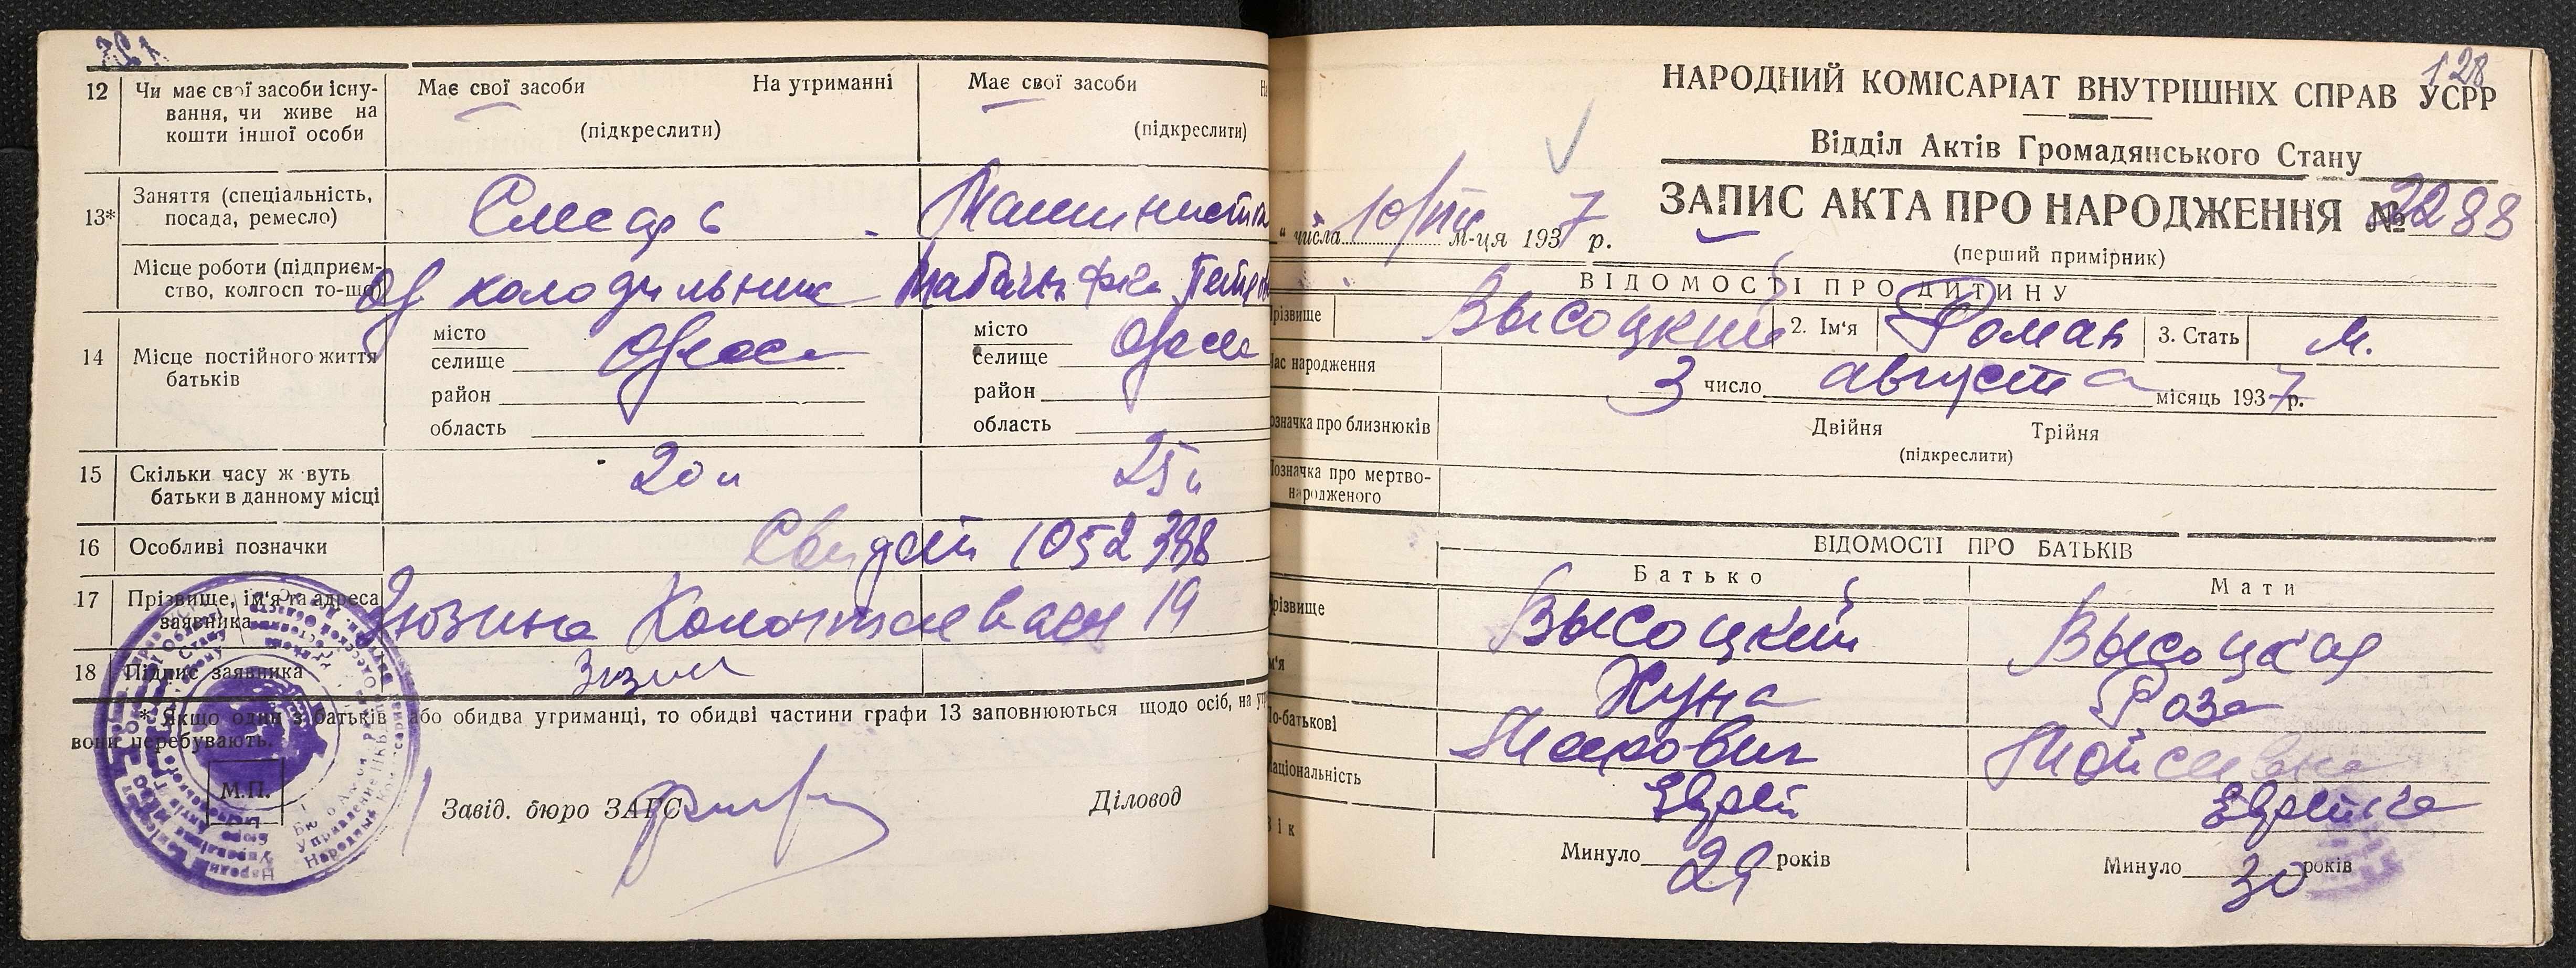 12 Чи має свої засоби існу-
вання, чи живе на
кошти іншої особи
Має свої засоби На утриманні
(підкреслити)
Має свої засоби
(підкреслити)
13* Заняття (спеціальність,
посада, ремесло)
Слесарь
Машинистка
Місце роботи (підприєм-
ство, колгосп то-що)
Од холодильник
Табачн ф-ка
14 Місце постійного життя
батьків
місто
селище Одеса
район
область
місто
селище Одеса
район
область
15 Скільки часу ж вуть
батьки в данному місці
20 л
25 л
16 Особливі позначки
Свидет 1052398
17 Прізвище, ім'я та адреса
заявника
19
18 Підпис заявника
* Якщо один з батьків або обидва утриманці, то обидві частини графи 13 заповнюються щодо осіб, на
вони перебувають.
М.П.
Завід. бюро ЗАГС
Діловод
128
НАРОДНИЙ КОМІСАРІАТ ВНУТРІШНІХ СПРАВ УСРР
Відділ Актів Громадянського Стану
ЗАПИС АКТА ПРО НАРОДЖЕННЯ № 2288
" числа м-ця 1937 р.
(перший примірник)
ВІДОМОСТІ ПРО ДИТИНУ
різвище Высоцкий 2. Ім'я Роман 3. Стать м.
ас народження 3 число августа місяць 1937 р.
означка про близнюків Двійня Трійня
(підкреслити)
означка про мертво-
народженого
ВІДОМОСТІ ПРО БАТЬКІВ
Батько Мати
різвище Высоцкий Высоцкая
м'я Хуна Роза
о-батькові Мойсеевна
аціональність Еврей Еврейка
ік Минуло 29 років Минуло 30 років